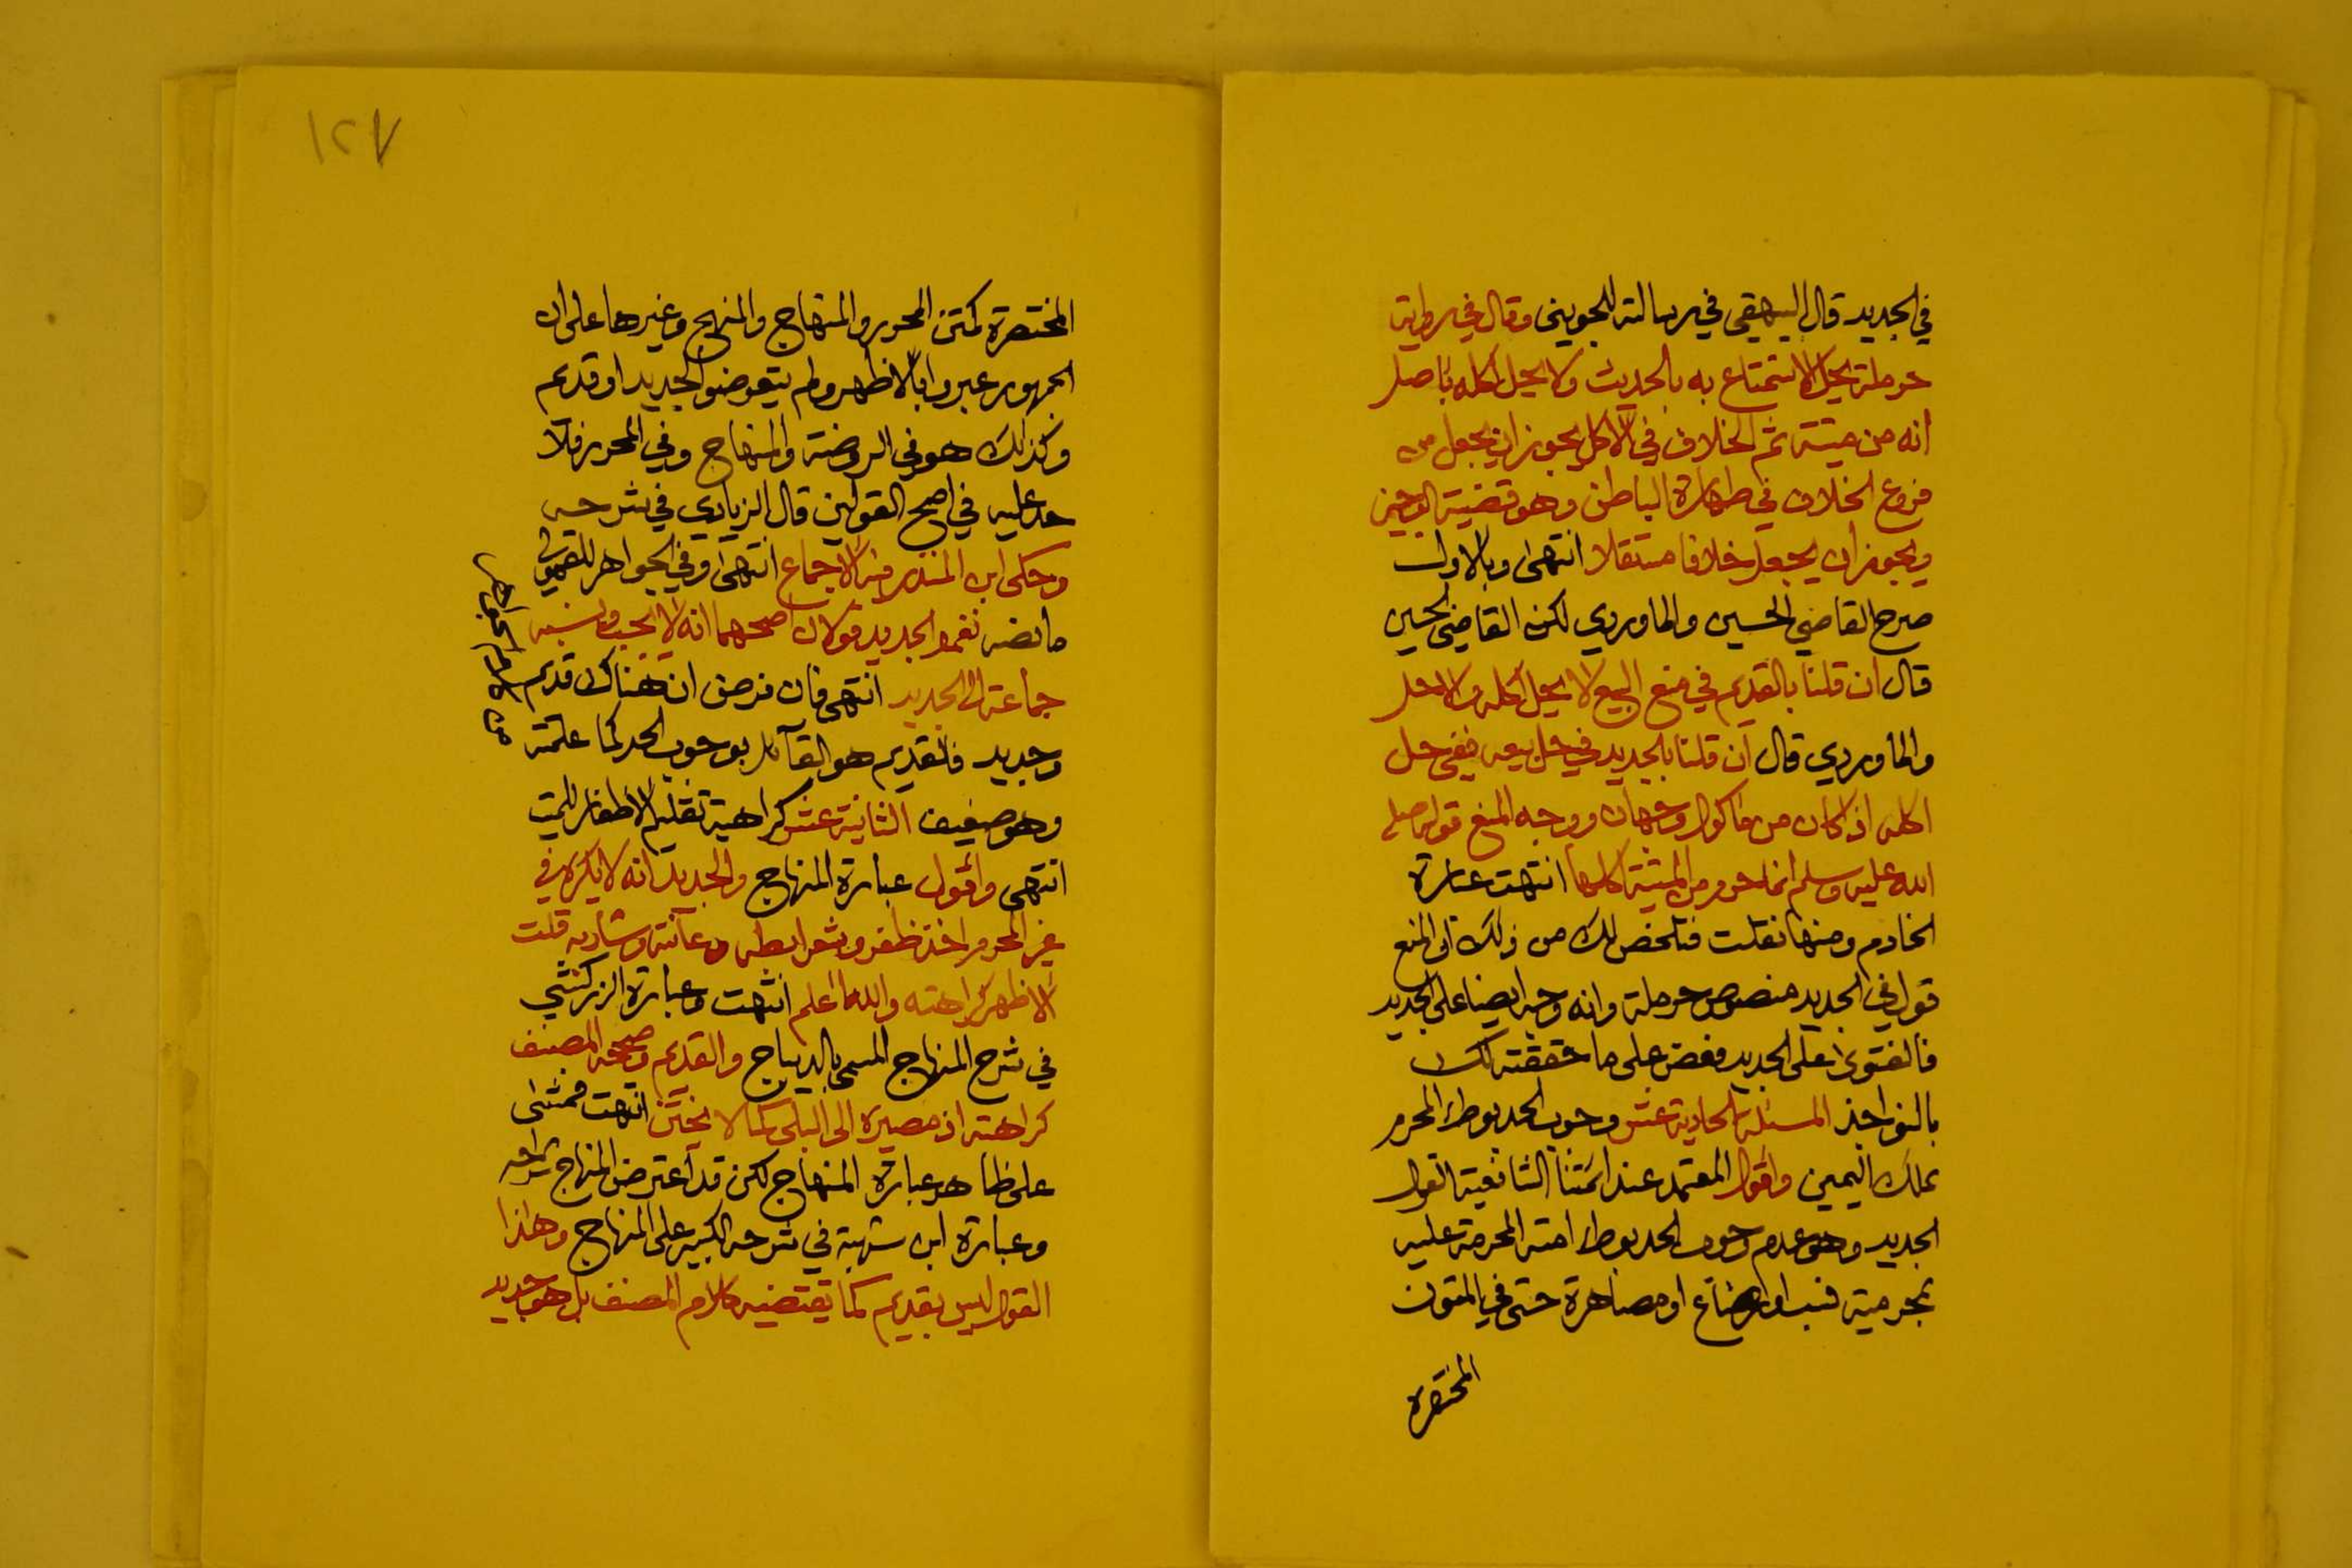 في الجديد قال البيهقي في رسالته للجويني وقال في رواية
حرملة يحل الاستمتاع به بالحديث ولا يحل اكله باصل
انه من ميتة ثم الخلاف في الاكل يجوز ان يجعل من
فروع الخلاف في طهارة الباطن وهو قضية الوجيز
ويجوز ان يجعل خلافا مستقلا انتهى وبالاول
صرح القاضي الحسين والماوردي لكن القاضي الحسين
قال ان قلنا بالقديم في منع البيع لا يحل اكله والا حل
والماوردي قال ان قلنا بالجديد في حل بيعه ففي حل
اكله اذا كان من ماكول وجهان ووجه المنع قوله صلى
الله عليه وسلم انما حرم من الميتة اكلها انتهت عبارة
الخادم ومنها نقلت فتلخص لك من ذلك ان المنع
قول في الجديد منصوص حرملة وانه وجه ايضا على الجديد
فالفتوى على الجديد فعض على ما حققته لك
بالنواجذ المسئلة الحادية عشر وجوب الحد بوطئ المحرم
بملك اليمين واقول المعتمد عند ائمتنا الشافعية القول
الجديد وهو عدم وجوب الحد بوطئ امته المحرمة عليه
بمحرمية نسب او رضاع او مصاهرة حتى في المتون
المختصرة
١٢٧
المختصرة كمتن المحرر والمنهاج والمنهج وغيرها على ان
الجمهور عبروا بالاظهر ولم يتعرضوا لجديد او قديم
وكذلك هو في الروضة والمنهاج وفي المحرر فلا
حد عليه في اصح القولين قال الزيادي في شرحه
وحكى ابن المنذر فيه الاجماع انتهى وفي الجواهر للقمولي
ما نصه نعم والجديد قولان اصحهما انه لا يجب ونسبه
جماعة الى الجديد انتهى فان فرض ان هناك قديم
وجديد فالقديم هو القائل بوجوب الحد كما علمته
وهو ضعيف الثانية عشر كراهية تقليم الاظفار للميت
انتهى واقول عبارة المنهاج والجديد انه لا يكره في
غير المحرم اخذ ظفره وشعر ابطه وعانته وشاربه قلت
الاظهر كراهته والله اعلم انتهت وعبارة الزركشي
في شرح المنهاج المسمى بالديباج والقديم وصححه المصنف
كراهته اذ مصيره الى البلى كما لا يختن انتهت فمشى
على ظاهر عبارة المنهاج لكن قد اعترض المنهاج شراحه
وعبارة ابن شهبة في شرحه الكبير على المنهاج وهذا
القول ليس بقديم كما يقتضيه كلام المصنف بل هو جديد